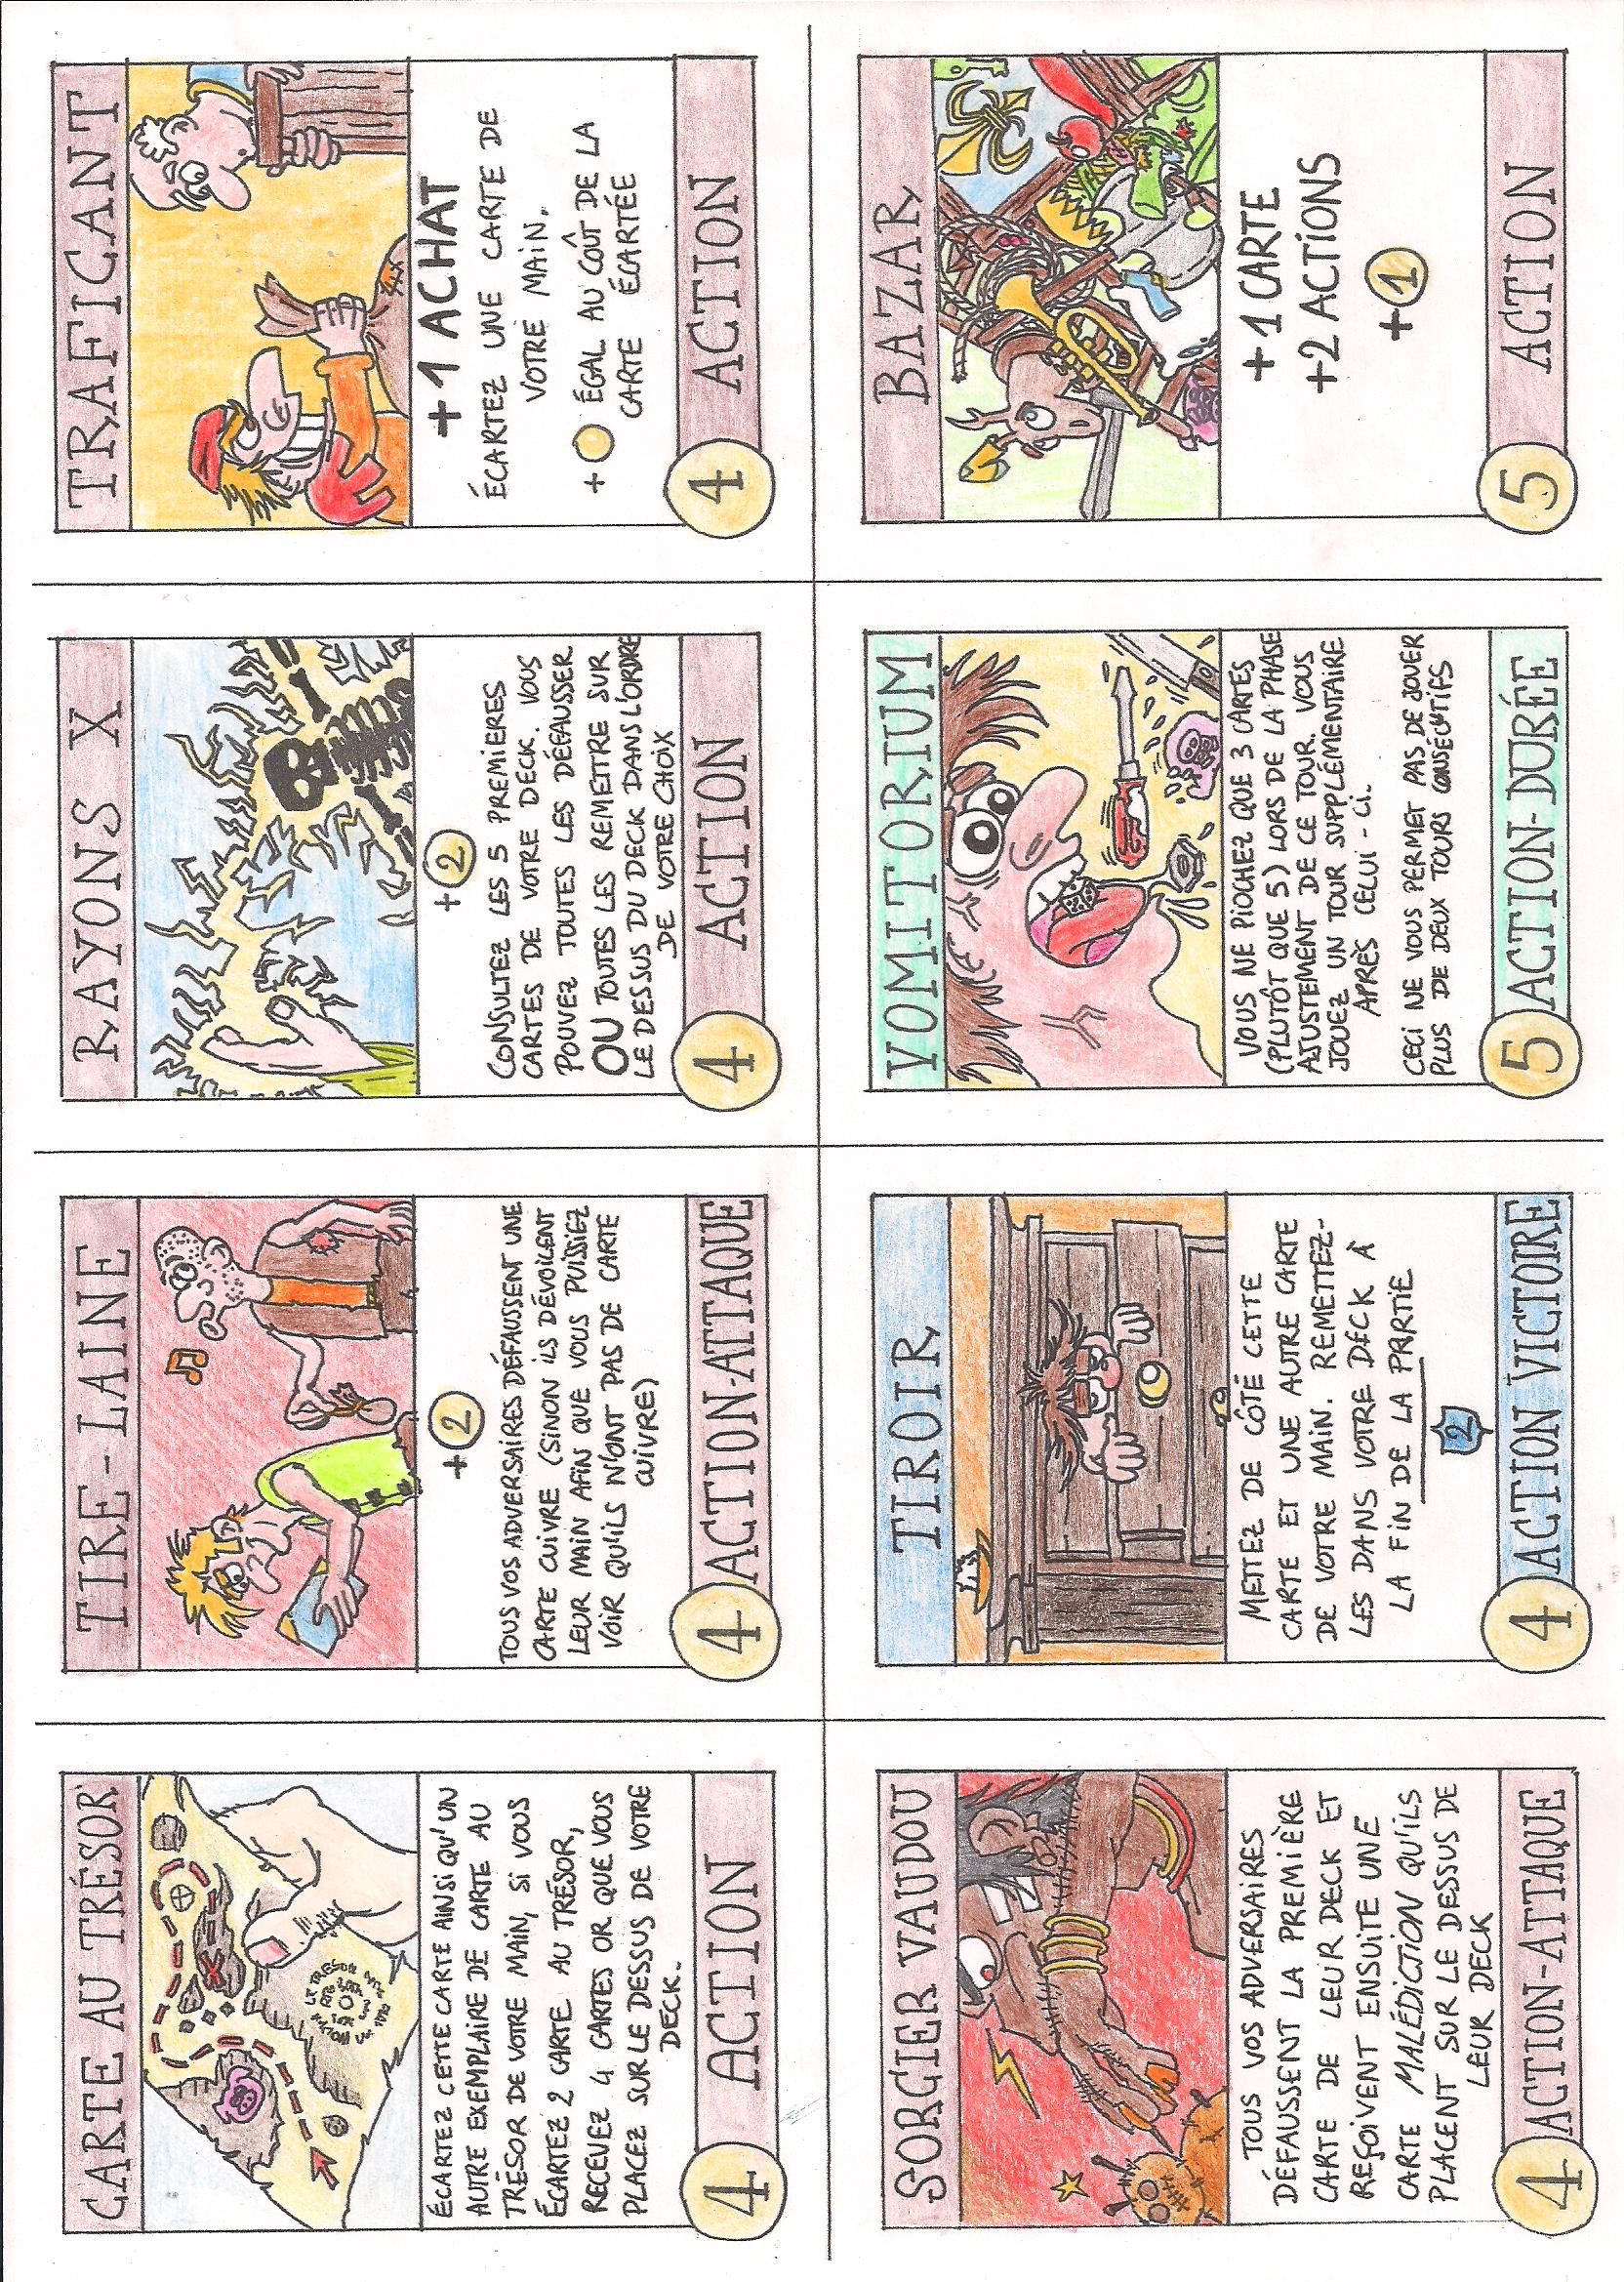 CARTE AU TRÉSOR
ÉCARTEZ CETTE CARTE AINSI QU'UN
AUTRE EXEMPLAIRE DE CARTE AU
TRÉSOR DE VOTRE MAIN, SI VOUS
ÉCARTEZ 2 CARTE AU TRÉSOR,
RECEVEZ 4 CARTES OR QUE VOUS
PLACEZ SUR LE DESSUS DE VOTRE
DECK.
4 ACTION
TIRE-LAINE
+2
TOUS VOS ADVERSAIRES DÉFAUSSENT UNE
CARTE CUIVRE (SINON ILS DÉVOILENT
LEUR MAIN AFIN QUE VOUS PUISSIEZ
VOIR QU'ILS N'ONT PAS DE CARTE
CUIVRE)
4 ACTION-ATTAQUE
RAYONS X
+2
CONSULTEZ LES 5 PREMIERES
CARTES DE VOTRE DECK. VOUS
POUVEZ TOUTES LES DÉFAUSSER
OU TOUTES LES REMETTRE SUR
LE DESSUS DU DECK DANS L'ORDRE
DE VOTRE CHOIX
4 ACTION
TRAFICANT
+1 ACHAT
ÉCARTEZ UNE CARTE DE
VOTRE MAIN.
+ ÉGAL AU COÛT DE LA
CARTE ÉCARTÉE
4 ACTION
SORCIER VAUDOU
TOUS VOS ADVERSAIRES
DÉFAUSSENT LA PREMIÈRE
CARTE DE LEUR DECK ET
REÇOIVENT ENSUITE UNE
CARTE MALÉDICTION QU'ILS
PLACENT SUR LE DESSUS DE
LEUR DECK
4 ACTION-ATTAQUE
TIROIR
METTEZ DE CÔTÉ CETTE
CARTE ET UNE AUTRE CARTE
DE VOTRE MAIN. REMETTEZ-
LES DANS VOTRE DECK À
LA FIN DE LA PARTIE
2
4 ACTION VICTOIRE
VOMITORIUM
VOUS NE PIOCHEZ QUE 3 CARTES
(PLUTÔT QUE 5) LORS DE LA PHASE
AJUSTEMENT DE CE TOUR. VOUS
JOUEZ UN TOUR SUPPLÉMENTAIRE
APRÈS CELUI-CI.
CECI NE VOUS PERMET PAS DE JOUER
PLUS DE DEUX TOURS CONSÉCUTIFS
5 ACTION-DURÉE
BAZAR
+1 CARTE
+2 ACTIONS
+1
5 ACTION